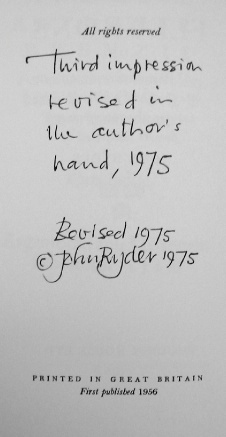 All rights reserved
Third impression
revised in
the author's
hand, 1975
Revised 1975
© John Ryder 1975
PRINTED IN GREAT BRITAIN
First published 1956